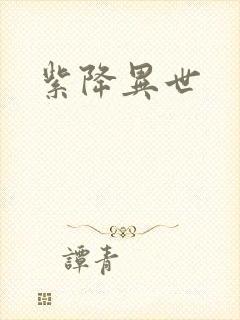 紫降異世
譚青